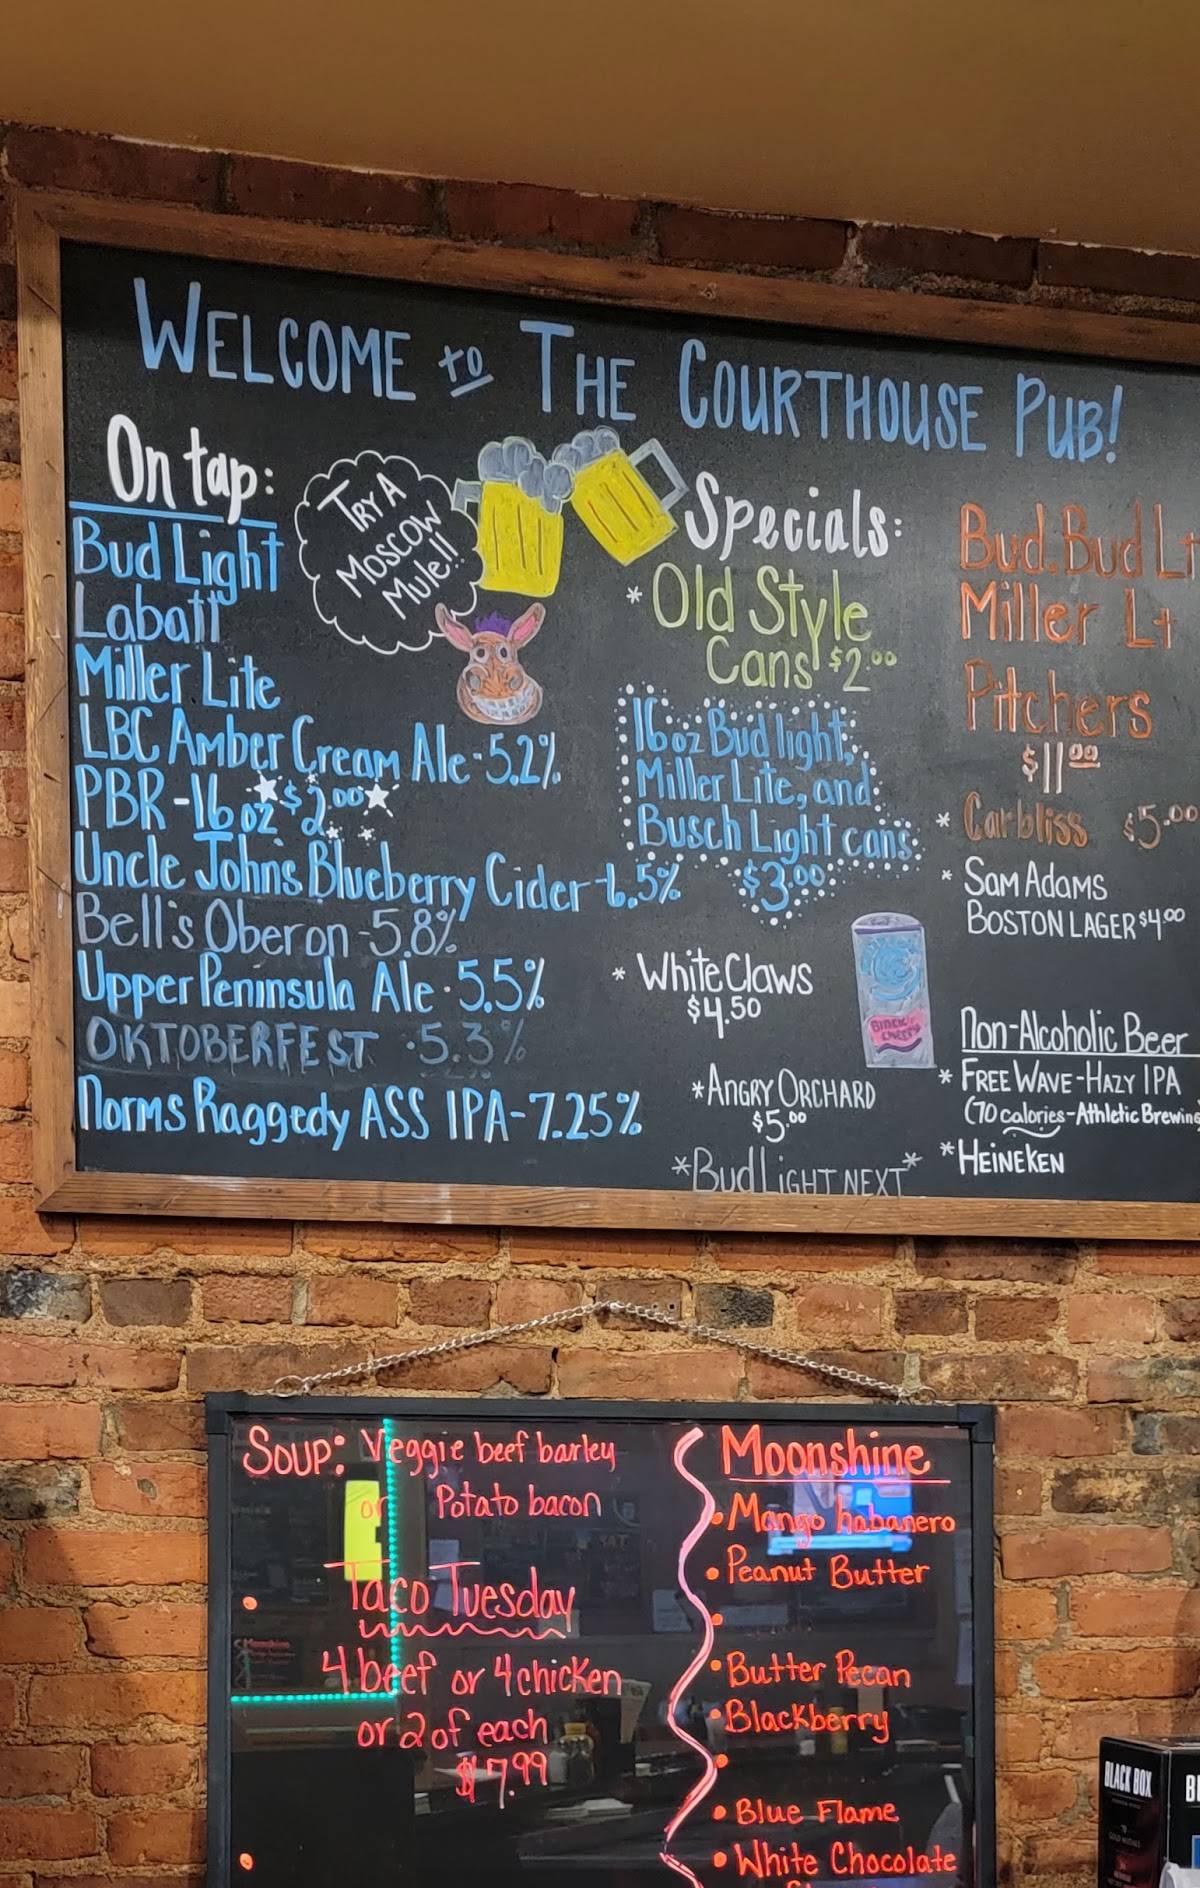 WELCOME to THE COURTHOUSE PUB!
On tap:
Bud Light
Labatt
Miller Lite
LBC Amber Cream Ale-5.2%
PBR-16oz $2.00
Uncle John's Blueberry Cider-6.5%
Bell's Oberon-5.8%
Upper Peninsula Ale-5.5%
OKTOBERFEST -5.3%
Norms Raggedy ASS IPA-7.25%
TRY A
MOSCOW
MULE!!
Specials:
*Old Style
Cans $2.00
16oz Bud light,
Miller Lite, and
Busch Light cans.
$3.00
* White Claws
$4.50
BLACK
CHERRY
*ANGRY ORCHARD
$5.00
*Bud LIGHT NEXT*
Bud. Bud Lt
Miller Lt
Pitchers
$11.00
* Carbliss $5.00
* SAM ADAMS
BOSTON LAGER $4.00
Non-Alcoholic Beer
* FREE WAVE-HAZY IPA
(70 calories-Athletic Brewing
*HEINEKEN
SOUP: Veggie beef barley
or Potato bacon
Taco Tuesday
4 beef or 4 chicken
or 2 of each
$7.99
Moonshine
• Mango habanero
• Peanut Butter
•
• Butter Pecan
• Blackberry
•
• Blue Flame
• White Chocolate
BLACK BOX